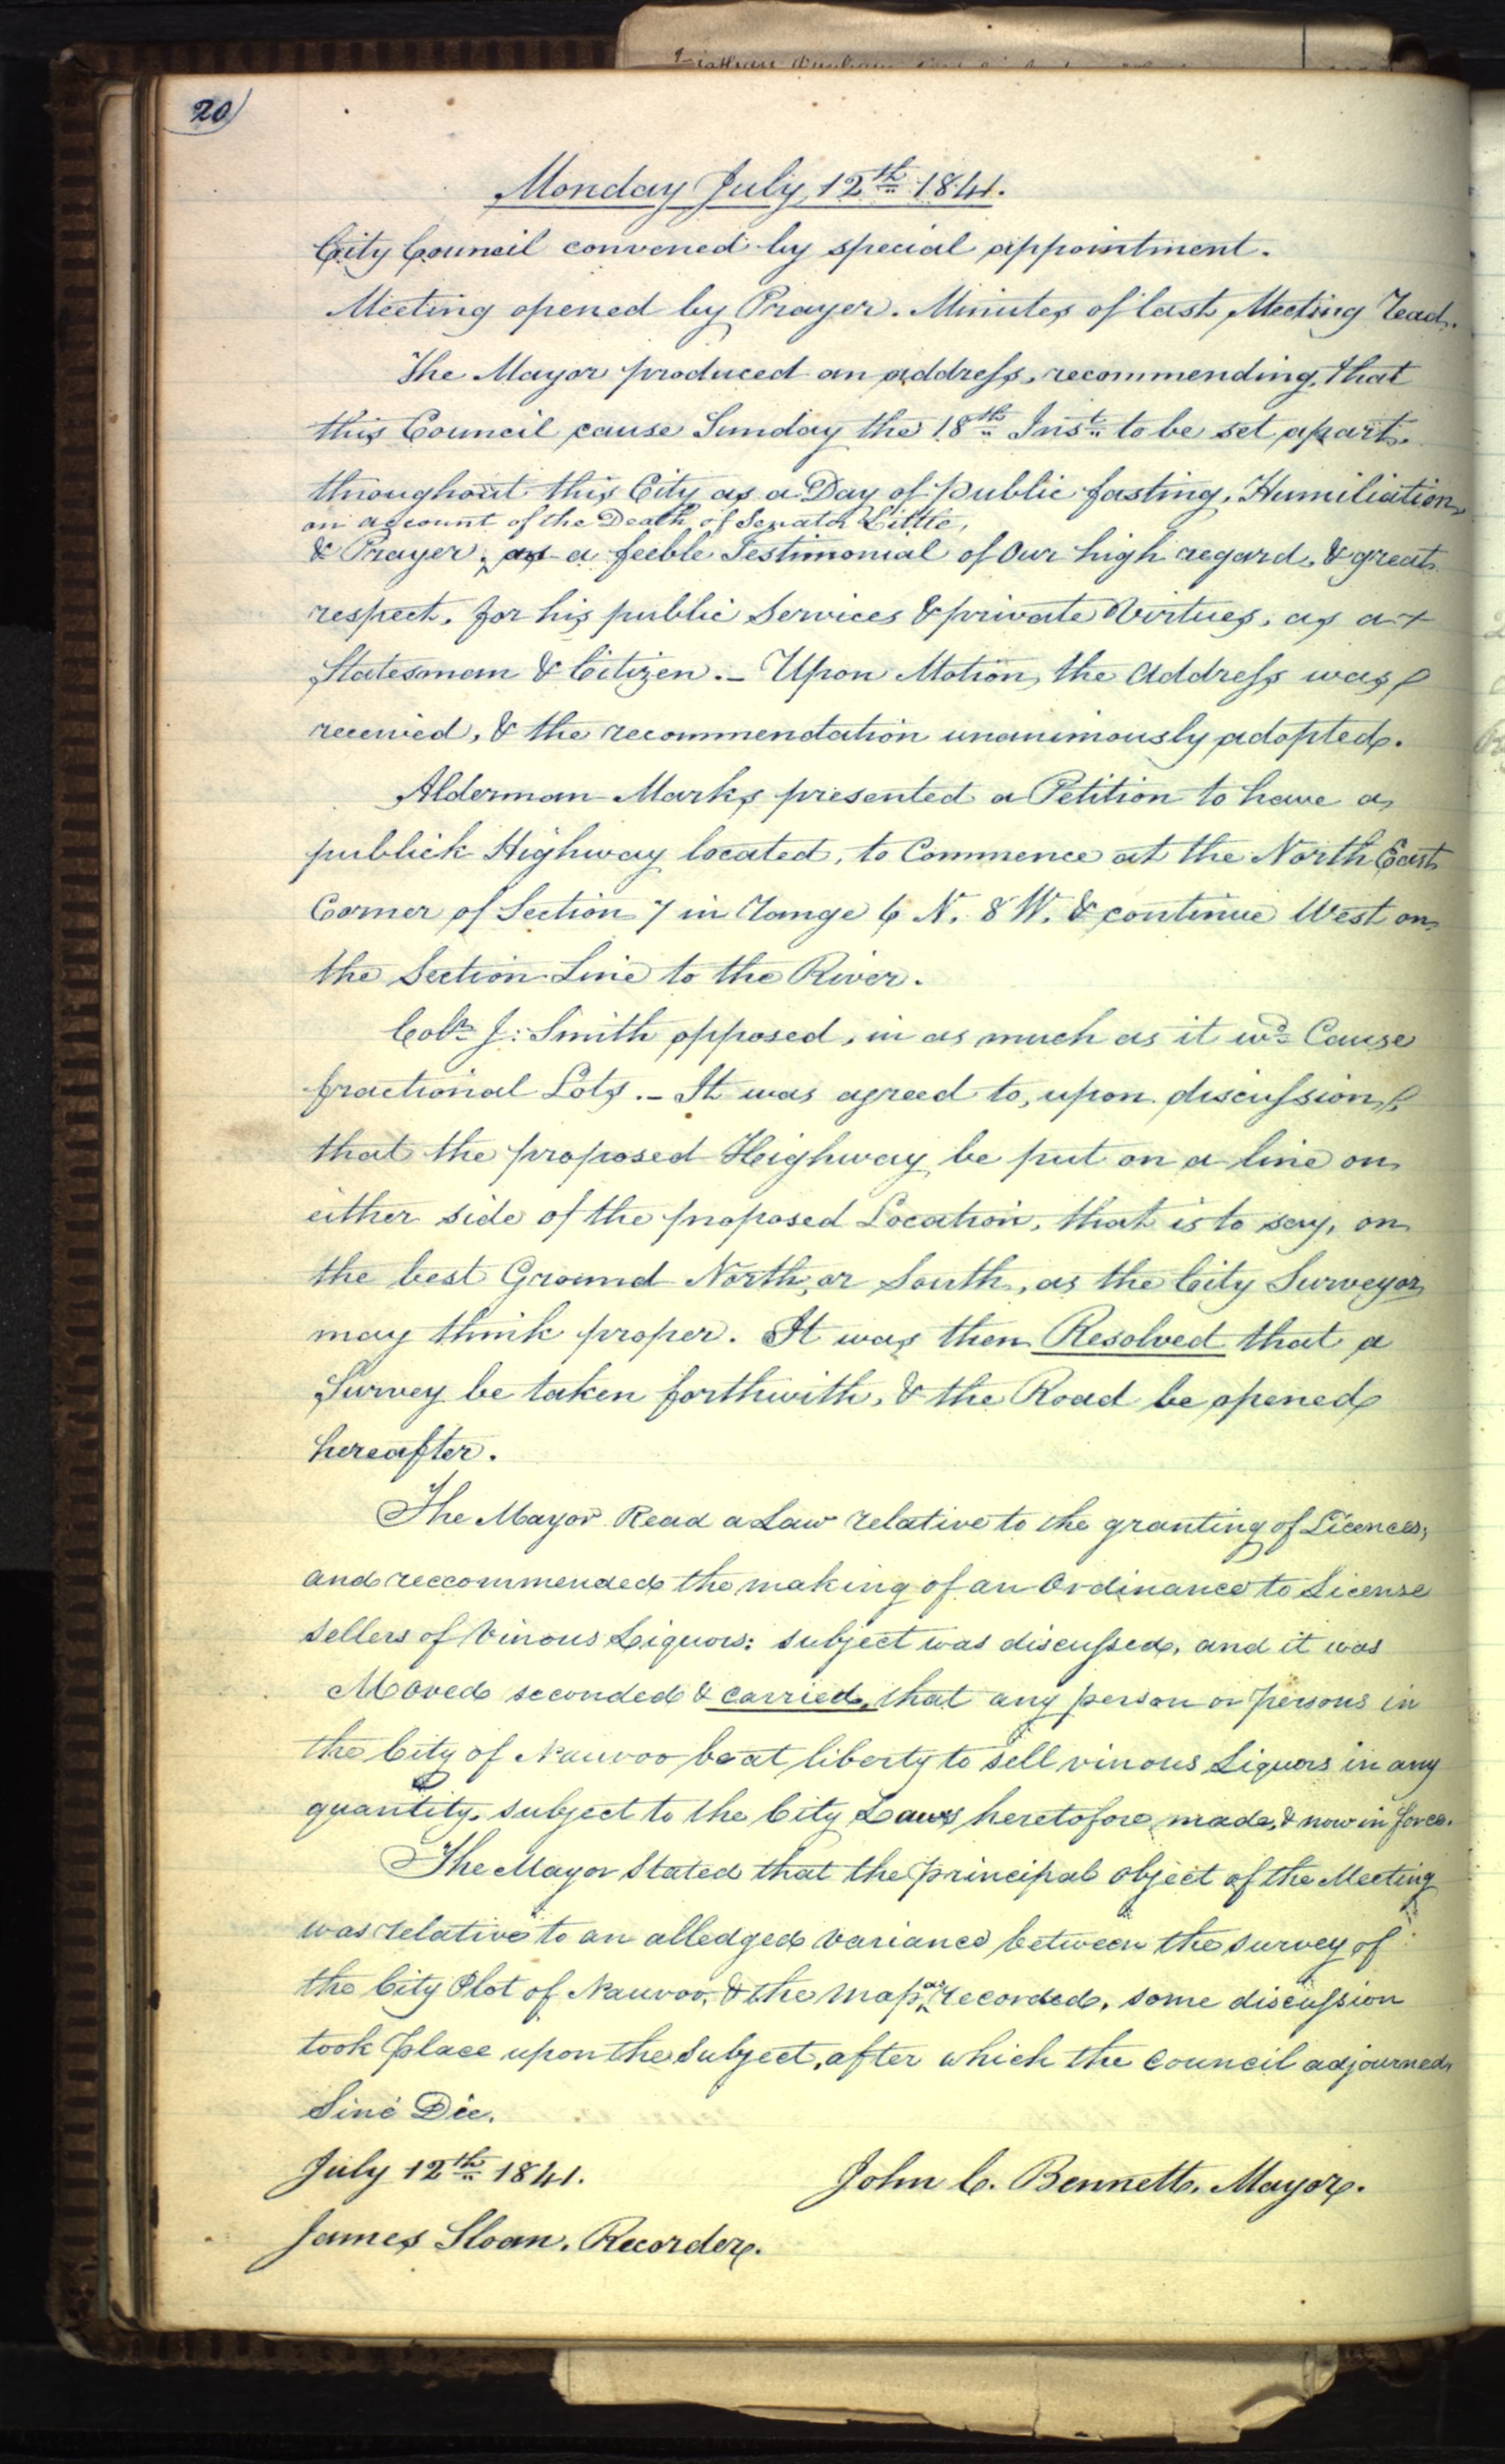 20
Monday July 12th 1841.
City Council convened by special appointment.
Meeting opened by Prayer. Minutes of last Meeting read.
The Mayor produced an address, recommending, that
this Council cause Sunday the 18th Inst. to be set apart
throughout this City as a Day of public fasting, Humiliation,
on account of the Death of Senator Little,
& Prayer, as a feeble Testimonial of Our high regard, & great
respect, for his public Services & private Virtues, as a
Statesman & Citizen.– Upon Motion, the Address was
received, & the recommendation unanimously adopted.
Alderman Marks presented a Petition to have a
publick Highway located, to Commence at the North East
Corner of Section 7 in range 6 N. 8 W. & continue West on
the Section Line to the River.
J: Smith opposed, in as much as it wd. Cause
fractional Lots.– It was agreed to, upon discussion,
that the proposed Highway be put on a line on
either side of the proposed Location, that is to say, on
the best Ground North, or South, as the City Surveyor
may think proper. It was then Resolved that a
Survey be taken forthwith, & the Road be opened
hereafter.
The Mayor Read a Law relative to the granting of Licences,
and reccommended the making of an Ordinance to License
sellers of Vinous Liquors: subject was discussed, and it was
Moved seconded & carried, that any person or persons in
the City of Nauvoo be at liberty to sell vinous Liquors in any
quantity, subject to the City Laws heretofore made, & now in force.
The Mayor Stated that the principal object of the Meeting
was relative to an alledged variance between the survey of
the City Plot of Nauvoo, & the Map as recorded, some discussion
took place upon the Subject, after which the Council adjourned
Siné Dié.
July 12th 1841. John C. Bennett, Mayor.
James Sloan, Recorder.